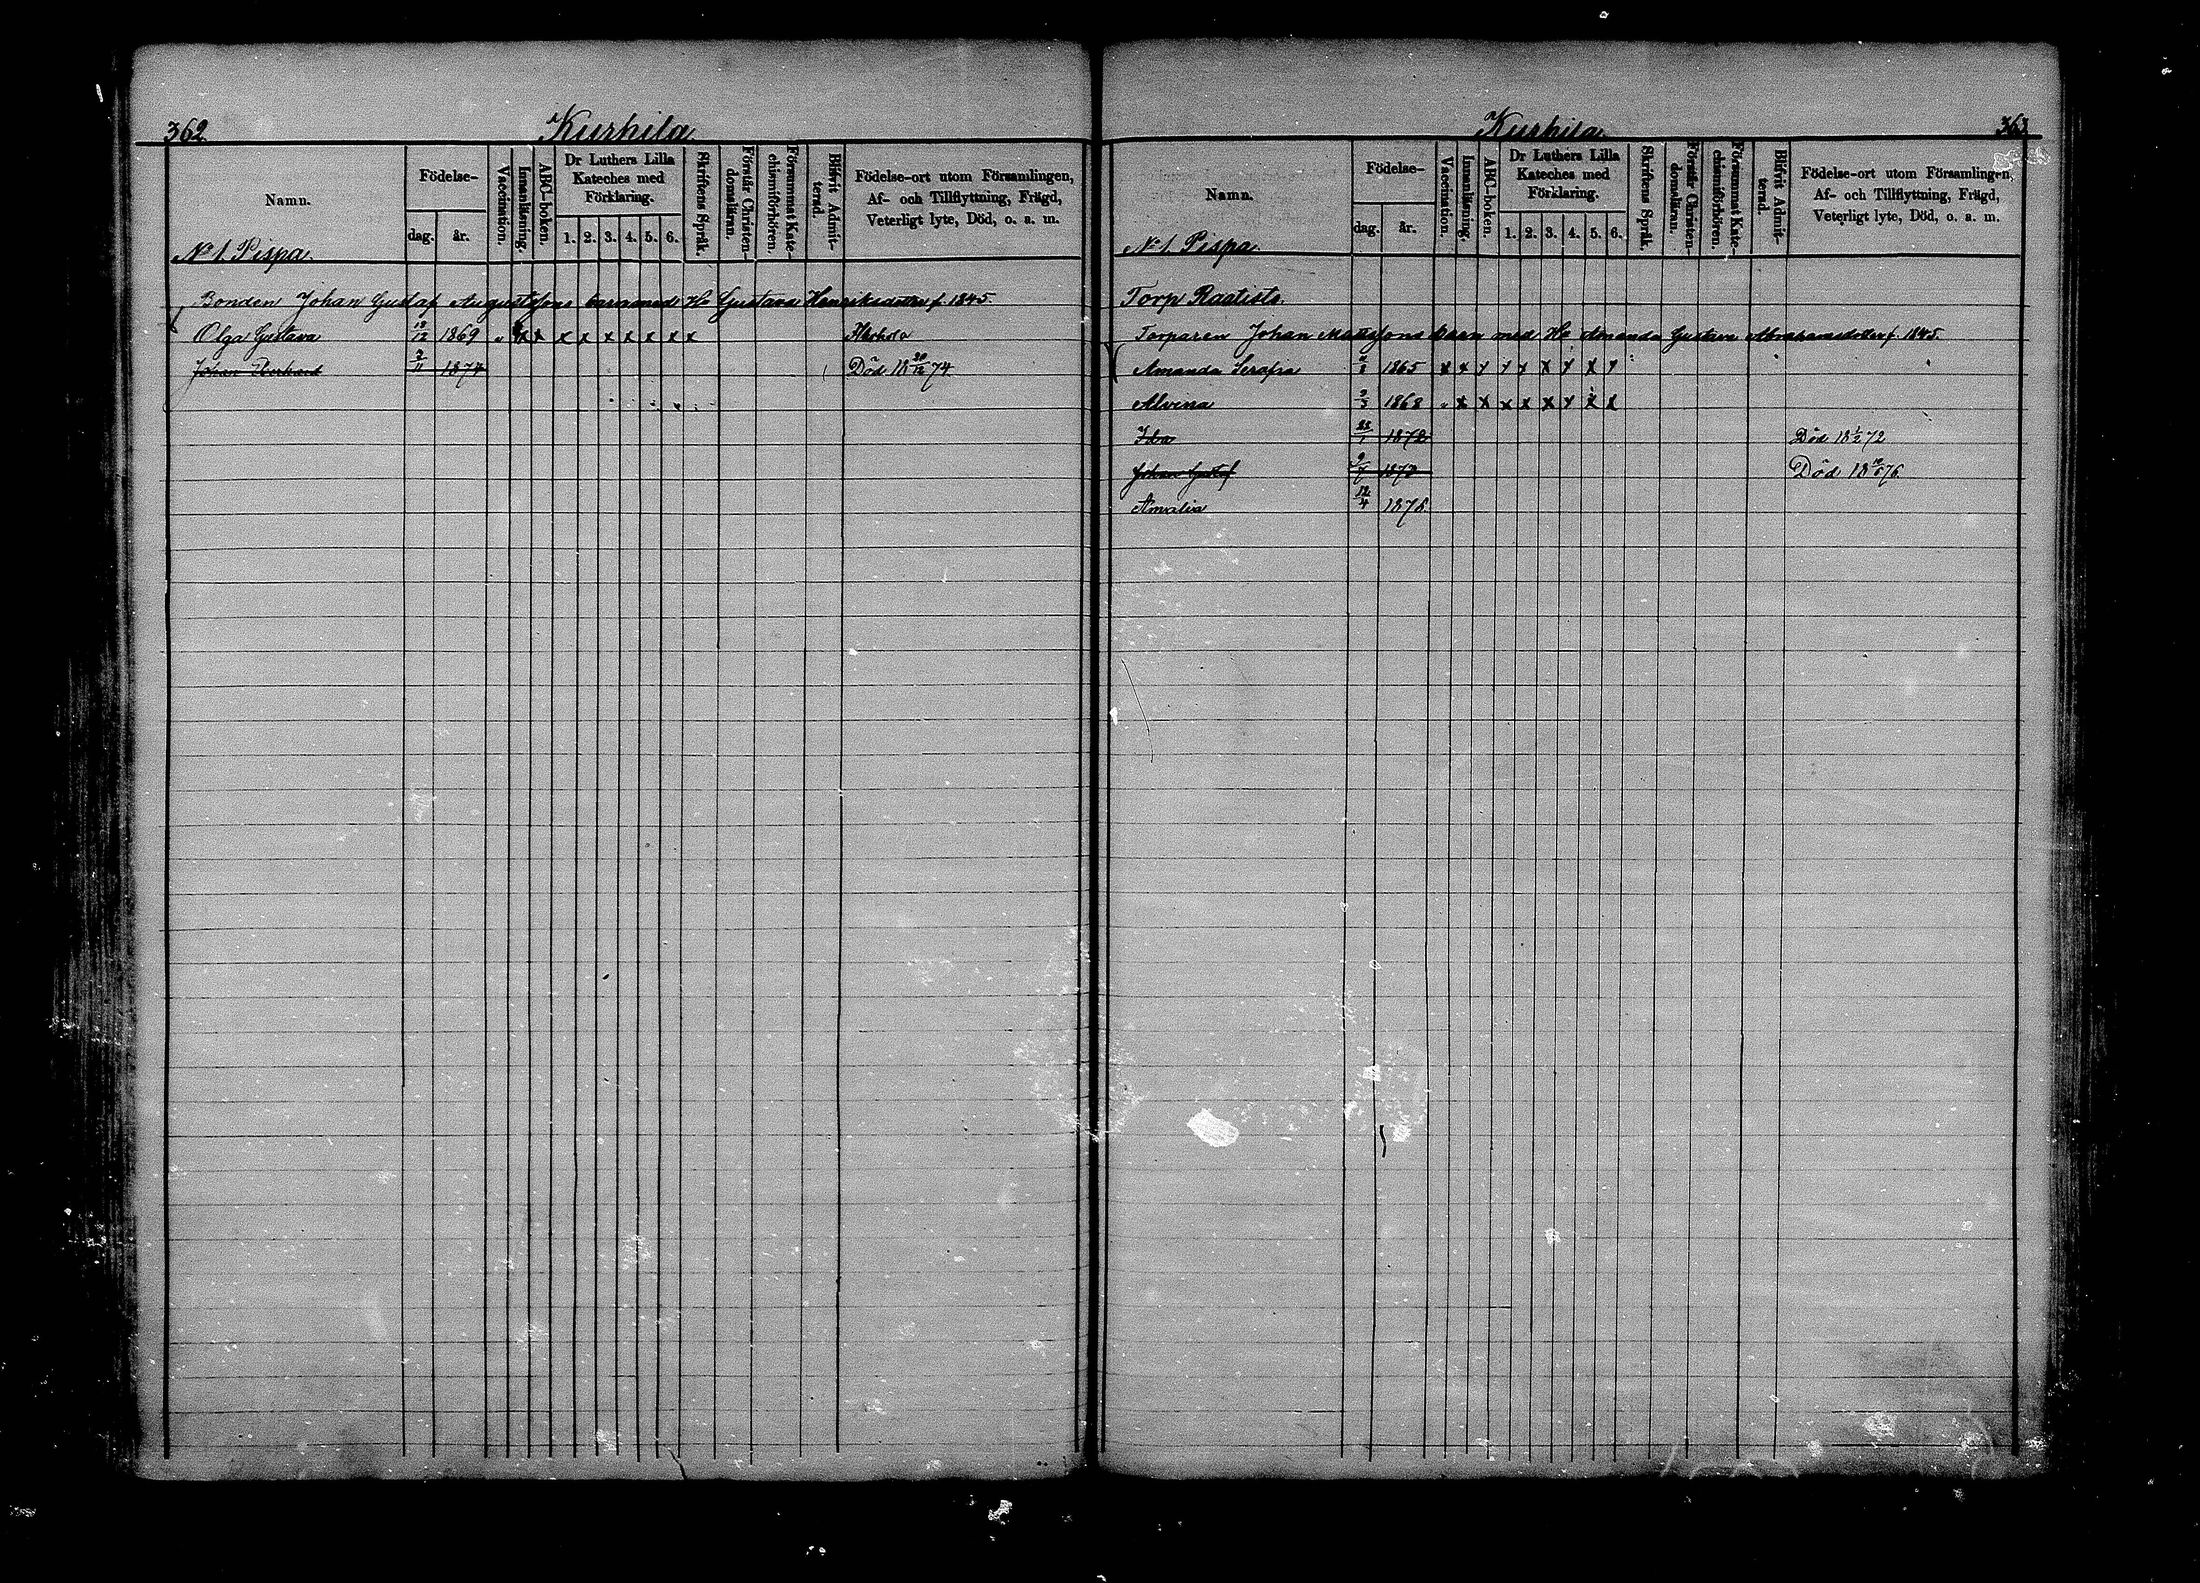 362 Kurhila
Namn. Födelse- dag. år. Vaccination. Innanläsning. ABC-boken. Dr Luthers Lilla Kateches med Förklaring. 1. 2. 3. 4. 5. 6. Skriftens Språk. Förstår Christendomsläran. Försummat Katechismiförhören. Blifvit Admitterad. Födelse-ort utom Församlingen, Af- och Tillflyttning, Frägd, Veterligt lyte, Död, o. a. m.
No 1. Pispa.
Bonden Johan Gustaf Augustssons barn med Ho Gustava Henriksdotter f. 1845.
Olga Gustava 1869 x x x x x x x x x
Johan 2/11 1874 Död 18 20/12 74
Kurhila 363
Namn. Födelse- dag. år. Vaccination. Innanläsning. ABC-boken. Dr Luthers Lilla Kateches med Förklaring. 1. 2. 3. 4. 5. 6. Skriftens Språk. Förstår Christendomsläran. Försummat Katechismiförhören. Blifvit Admitterad. Födelse-ort utom Församlingen, Af- och Tillflyttning, Frägd, Veterligt lyte, Död, o. a. m.
No 1. Pispa.
Torp Raatisto.
Torparen Johan Mattssons barn med Ho Amanda Gustava Abrahamsdotter f. 1845.
Amanda Serafia 1865 x x x x x x x x x
Alvina 1868 x x x x x x x x
Ida 1872 Död 18 1/2 72
Johan Gustaf 9/7 1873 Död 18 76.
Amalia 12/4 1878.